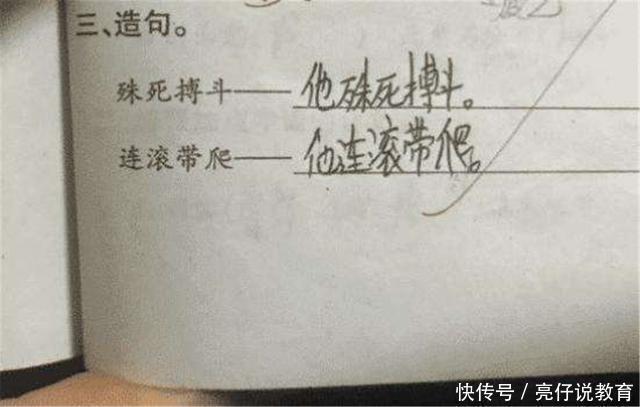 三、造句。
殊死搏斗——他殊死搏斗。
连滚带爬——他连滚带爬。
快传号 / 亮仔说教育